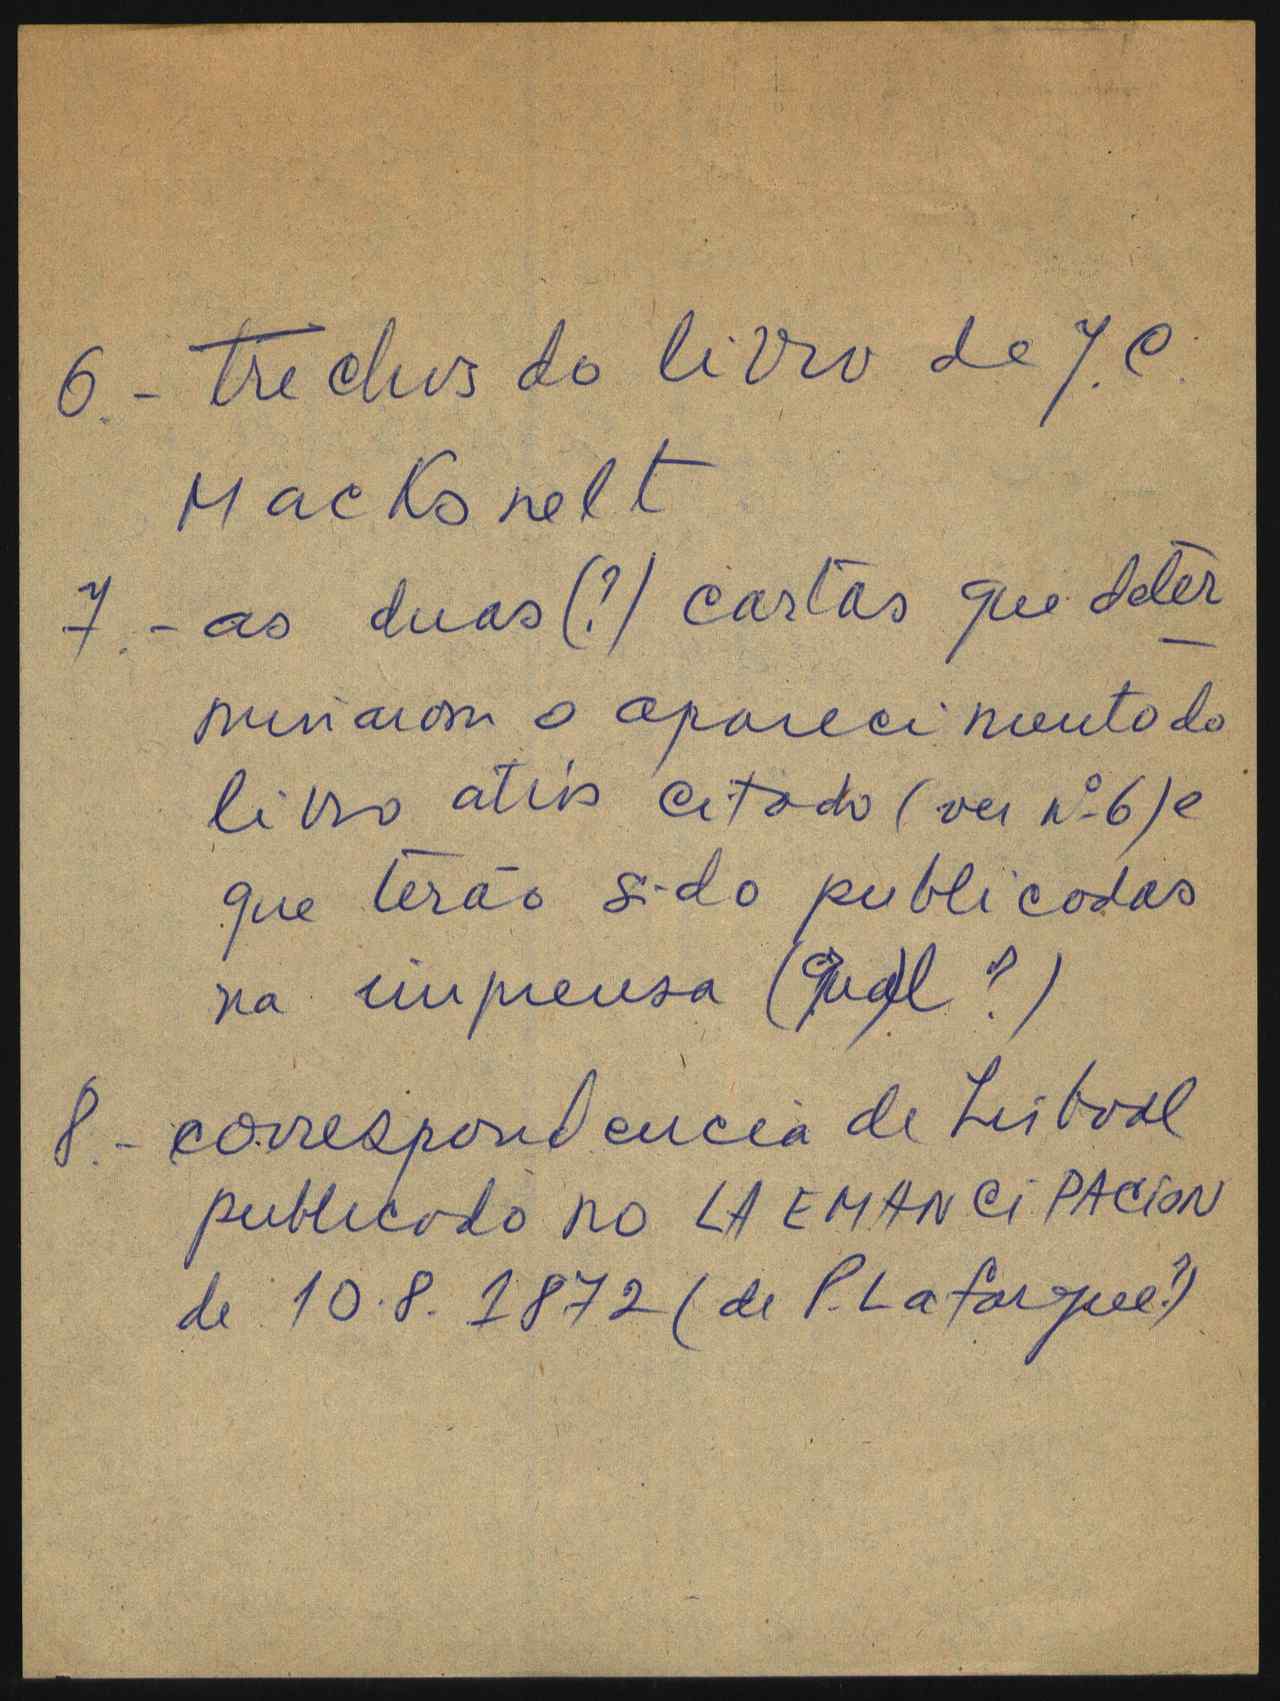 6. - trechos do livro de J. C.
MacKonelt
7. - as duas (?) cartas que deter
minaram o aparecimento do
livro atrás citado (ver nº 6) e
que terão sido publicadas
na imprensa (qual ?)
8. - correspondencia de Lisboa
publicado no LA EMANCIPACION
de 10.8.1872 (de P. Lafargue?)